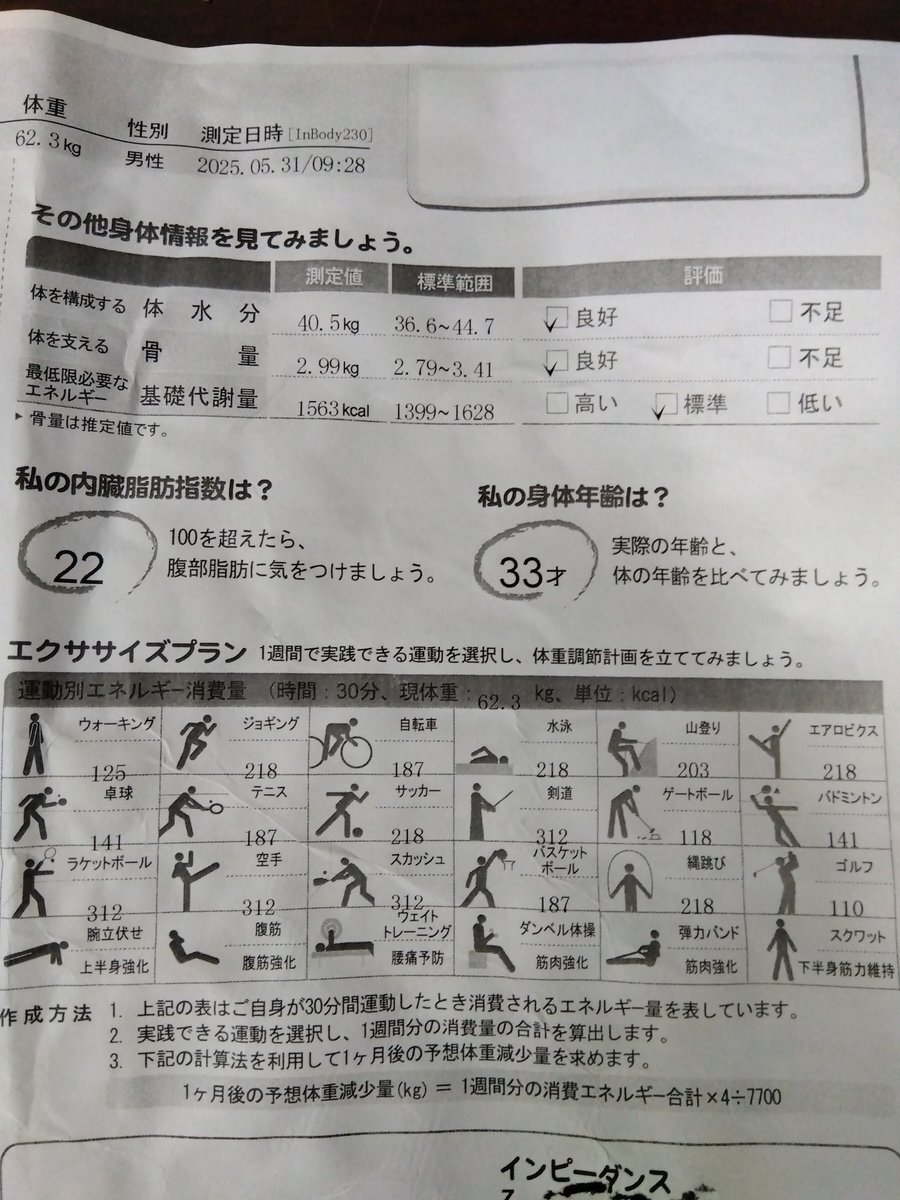 体重 性別 測定日時[InBody230]
62.3kg 男性 2025.05.31/09:28
その他身体情報を見てみましょう。
測定値 標準範囲 評価
体を構成する 体水分 40.5kg 36.6~44.7 良好 不足
体を支える 骨量 2.99kg 2.79~3.41 良好 不足
最低限必要な
エネルギー 基礎代謝量 1563kcal 1399~1628 高い 標準 低い
▸ 骨量は推定値です。
私の内臓脂肪指数は?
22
100を超えたら、
腹部脂肪に気をつけましょう。
私の身体年齢は?
33才
実際の年齢と、
体の年齢を比べてみましょう。
エクササイズプラン 1週間で実践できる運動を選択し、体重調節計画を立ててみましょう。
運動別エネルギー消費量 (時間:30分、現体重:62.3 kg、単位:kcal)
ウォーキング ジョギング 自転車 水泳 山登り エアロビクス
125 218 187 218 203 218
卓球 テニス サッカー 剣道 ゲートボール バドミントン
141 187 218 312 118 141
ラケットボール 空手 スカッシュ バスケット
ボール 縄跳び ゴルフ
312 312 312 187 218 110
腕立伏せ 腹筋 ウェイト
トレーニング ダンベル体操 弾力バンド スクワット
上半身強化 腹筋強化 腰痛予防 筋肉強化 筋肉強化 下半身筋力維持
作成方法 1. 上記の表はご自身が30分間運動したとき消費されるエネルギー量を表しています。
2. 実践できる運動を選択し、1週間分の消費量の合計を算出します。
3. 下記の計算法を利用して1ヶ月後の予想体重減少量を求めます。
1ヶ月後の予想体重減少量(kg) = 1週間分の消費エネルギー合計×4÷7700
インピーダンス
Z